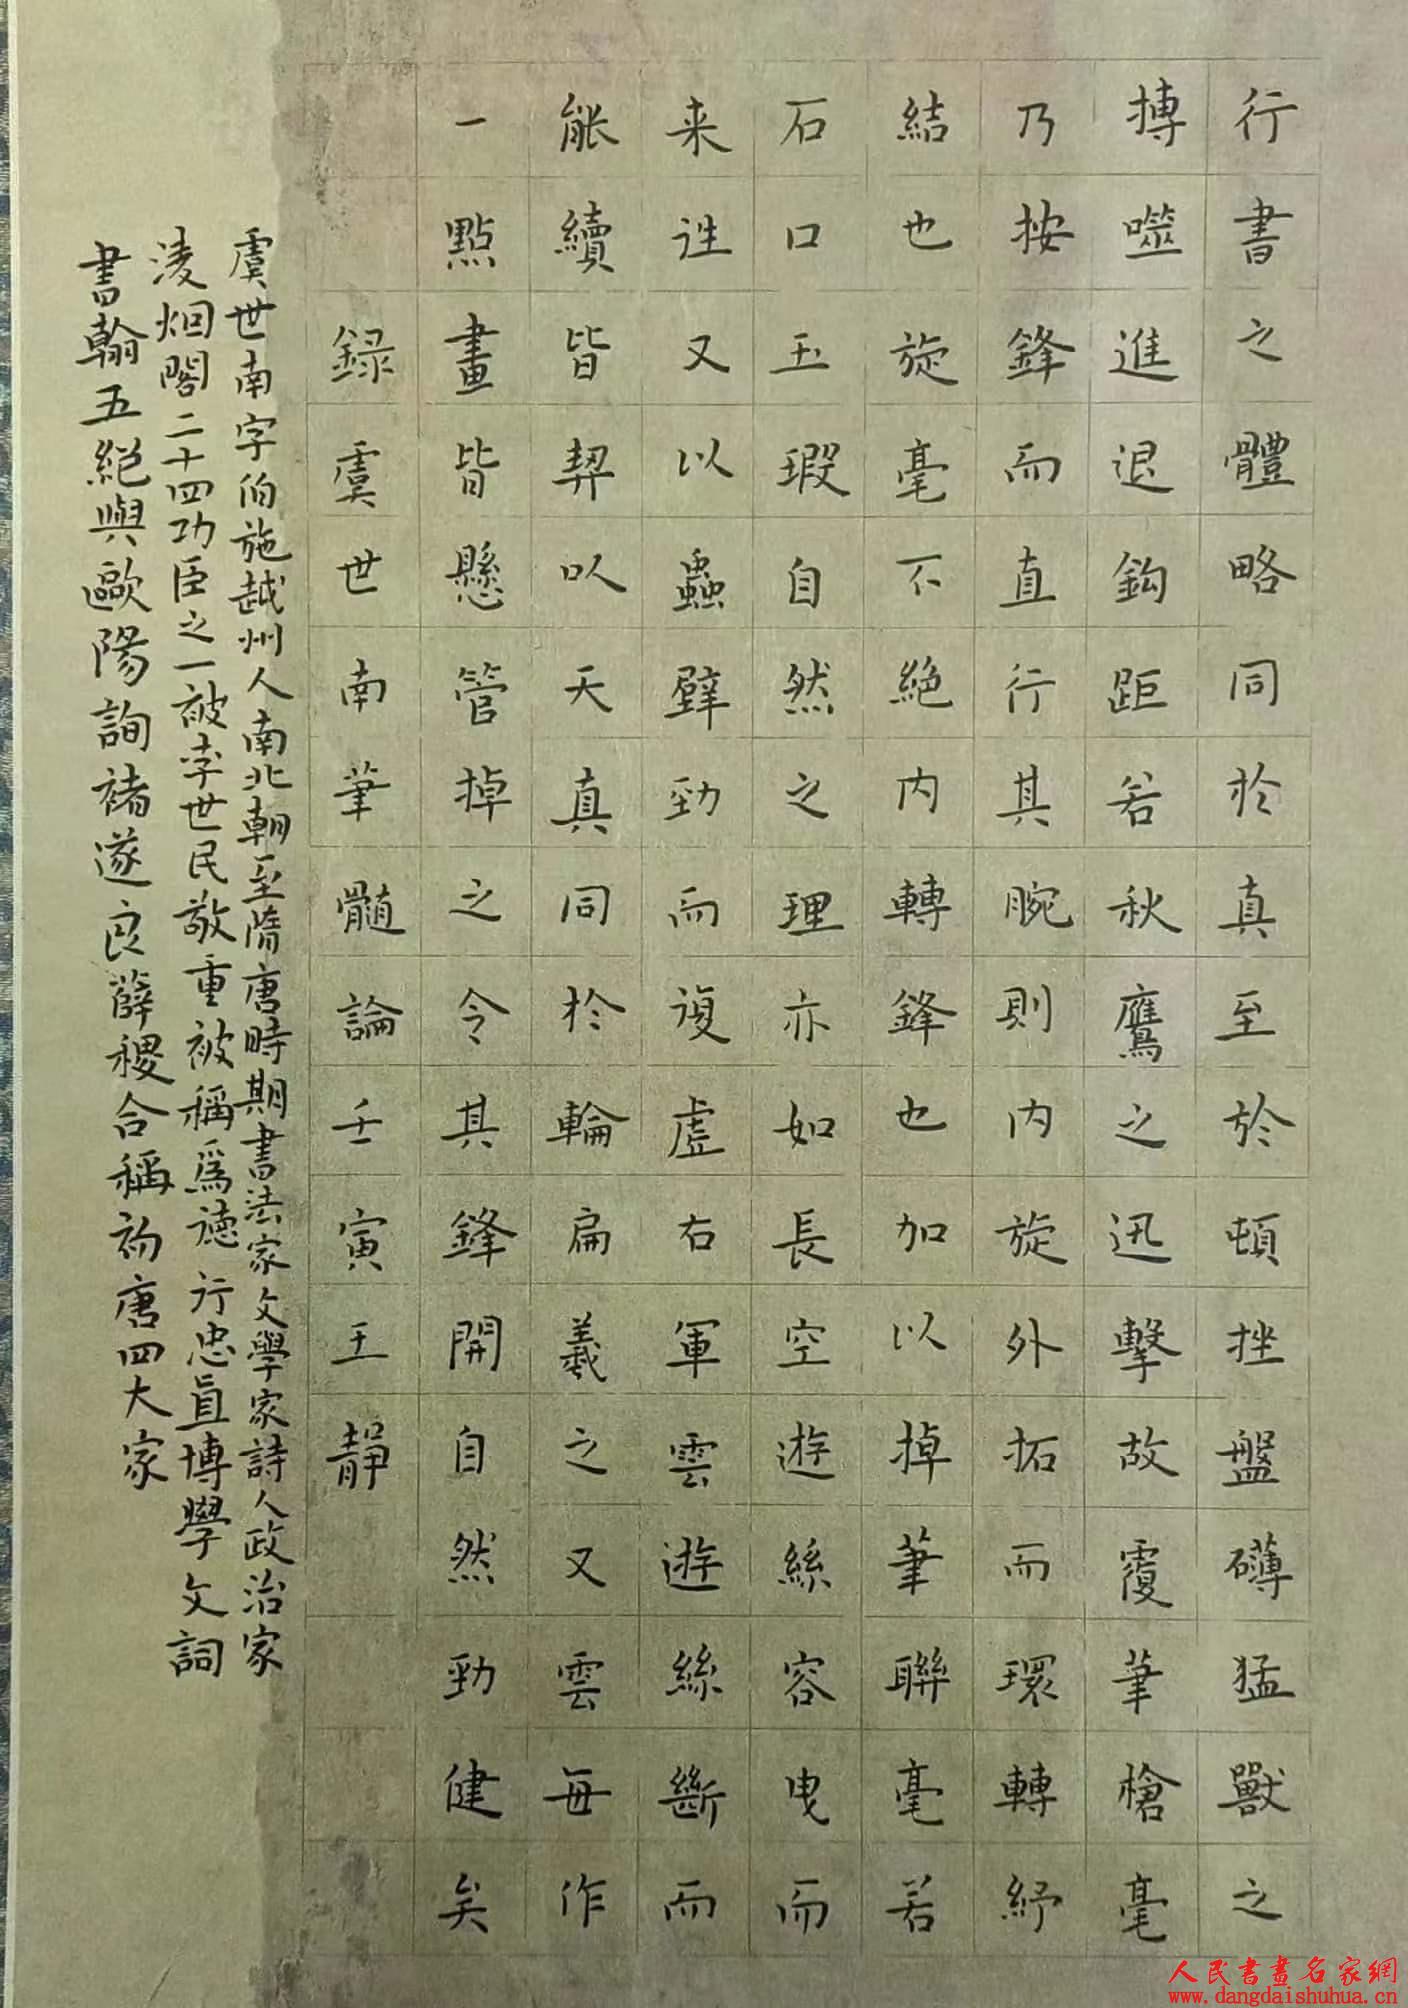 行書之體略同於真至於頓挫盤礴猛獸之
搏噬進退鈎距若秋鷹之迅擊故覆筆槍毫
乃按鋒而直行其腕則内旋外拓而環轉紓
結也旋毫不絕内轉鋒也加以掉筆聯毫若
石口玉瑕自然之理亦如長空遊絲容曳而
来往又以蟲壁勁而復虛右軍雲遊絲斷而
能續皆契以天真同於輪扁羲之又雲每作
一點畫皆懸管掉之令其鋒開自然勁健矣
録虞世南筆髓論壬寅王靜
虞世南字伯施越州人南北朝至隋唐時期書法家文學家詩人政治家
淩烟閣二十四功臣之一被李世民敬重被稱爲德行忠直博學文詞
書翰五絕與歐陽詢褚遂良薛稷合稱初唐四大家
人民書畫名家網
www.dangdaishuhua.cn